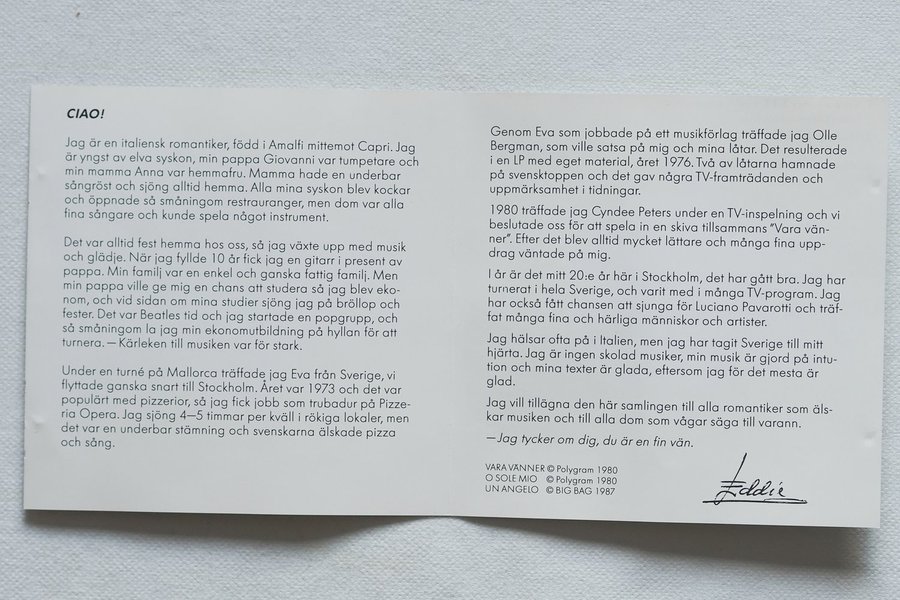 CIAO!
Jag är en italiensk romantiker, född i Amalfi mittemot Capri. Jag
är yngst av elva syskon, min pappa Giovanni var tumpetare och
min mamma Anna var hemmafru. Mamma hade en underbar
sångröst och sjöng alltid hemma. Alla mina syskon blev kockar
och öppnade så småningom restauranger, men dom var alla
fina sångare och kunde spela något instrument.
Det var alltid fest hemma hos oss, så jag växte upp med musik
och glädje. När jag fyllde 10 år fick jag en gitarr i present av
pappa. Min familj var en enkel och ganska fattig familj. Men
min pappa ville ge mig en chans att studera så jag blev eko-
nom, och vid sidan om mina studier sjöng jag på bröllop och
fester. Det var Beatles tid och jag startade en popgrupp, och
så småningom la jag min ekonomutbildning på hyllan för att
turnera. — Kärleken till musiken var för stark.
Under en turné på Mallorca träffade jag Eva från Sverige, vi
flyttade ganska snart till Stockholm. Året var 1973 och det var
populärt med pizzerior, så jag fick jobb som trubadur på Pizze-
ria Opera. Jag sjöng 4—5 timmar per kväll i rökiga lokaler, men
det var en underbar stämning och svenskarna älskade pizza
och sång.
Genom Eva som jobbade på ett musikförlag träffade jag Olle
Bergman, som ville satsa på mig och mina låtar. Det resulterade
i en LP med eget material, året 1976. Två av låtarna hamnade
på svensktoppen och det gav några TV-framträdanden och
uppmärksamhet i tidningar.
1980 träffade jag Cyndee Peters under en TV-inspelning och vi
beslutade oss för att spela in en skiva tillsammans "Vara vän-
ner". Efter det blev alltid mycket lättare och många fina upp-
drag väntade på mig.
I år är det mitt 20:e år här i Stockholm, det har gått bra. Jag har
turnerat i hela Sverige, och varit med i många TV-program. Jag
har också fått chansen att sjunga för Luciano Pavarotti och träf-
fat många fina och härliga människor och artister.
Jag hälsar ofta på i Italien, men jag har tagit Sverige till mitt
hjärta. Jag är ingen skolad musiker, min musik är gjord på intu-
tion och mina texter är glada, eftersom jag för det mesta är
glad.
Jag vill tillägna den här samlingen till alla romantiker som äls-
kar musiken och till alla dom som vågar säga till varann.
—Jag tycker om dig, du är en fin vän.
VARA VÄNNER © Polygram 1980
O SOLE MIO © Polygram 1980
UN ANGELO © BIG BAG 1987
Eddie